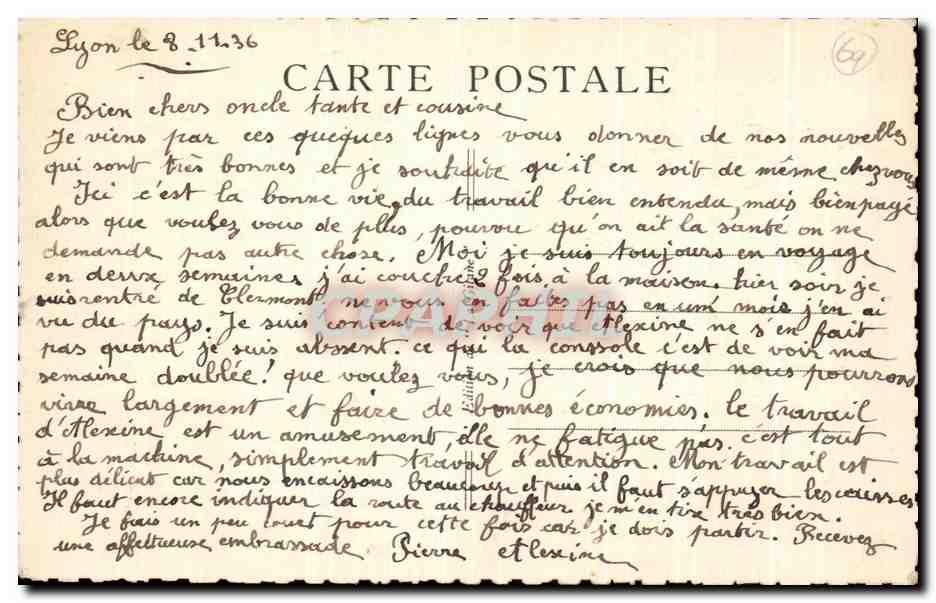 Lyon le 8.11.36
69
CARTE POSTALE
Bien chers oncle tante et cousine
Je viens par ces queques lignes vous donner de nos nouvelles
qui sont très bonnes et je souhaite qu'il en soit de même chez vous
Ici c'est la bonne vie, du travail bien entendu, mais bien payé
alors que voulez vous de plus, pourvou qu'on ait la santé on ne
demande pas autre chose. Moi je suis toujours en voyage
en deux semaines j'ai couché 2 fois à la maison. hier soir je
suis rentré de Clermont, ne vous en faites pas en un mois j'en ai
vu du pays. Je suis content de voir que Alexine ne s'en fait
pas quand je suis absent. ce qui la conssole c'est de voir ma
semaine doublée! que voulez vous, je crois que nous pourrons
vivre largement et faire de bonnes économies. le travail
d'Alexine est un amusement, elle ne fatigue pas c'est tout
à la machine, simplement travail d'attention. Mon travail est
plus délicat car nous encaissons beaucoup et puis il faut s'appuyer les caisses
Il faut encore indiquer la route au chauffeur je m'en tire très bien.
Je fais un peu court pour cette fois car je dois partir. Recevez
une affettueuse embrassade Pierre Alexine
Edition
CPAPHIL